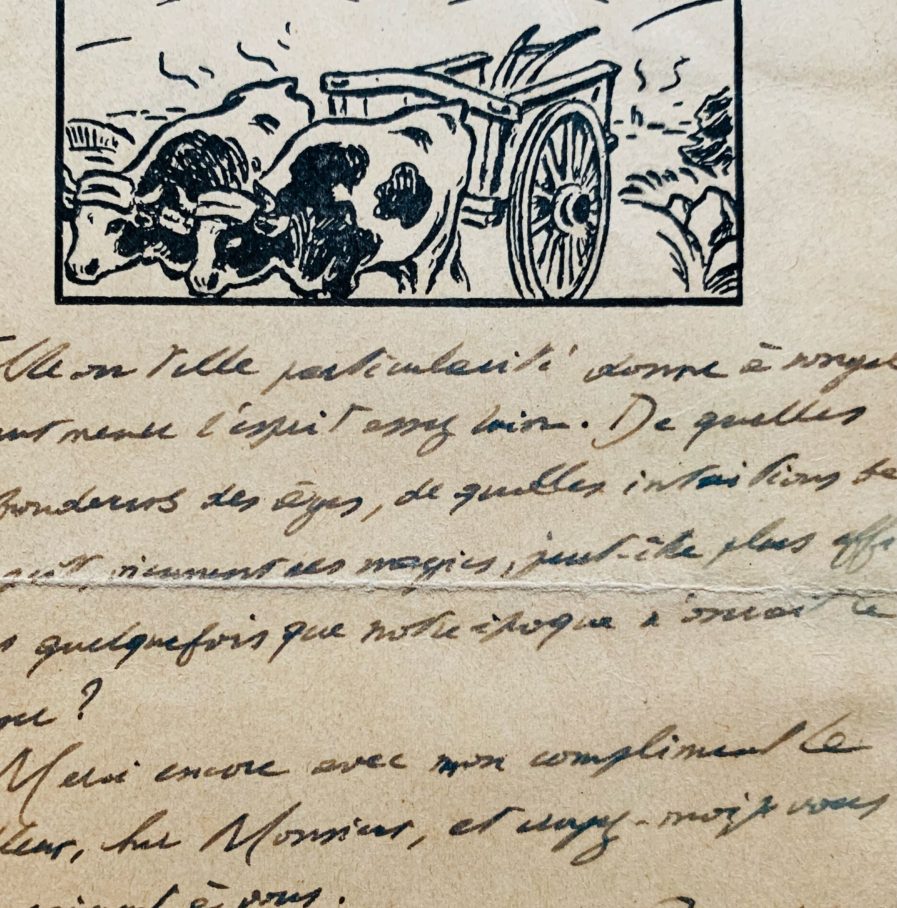 telle ou telle particularité donne à songer
mener l'esprit assez loin. De quelles
des âges, de quelles intuitions
viennent ces magies, peut-être plus
quelquefois que notre époque n'oserait le
?
Merci encore avec mon compliment le
cher Monsieur, et croyez-moi je vous
à vous.